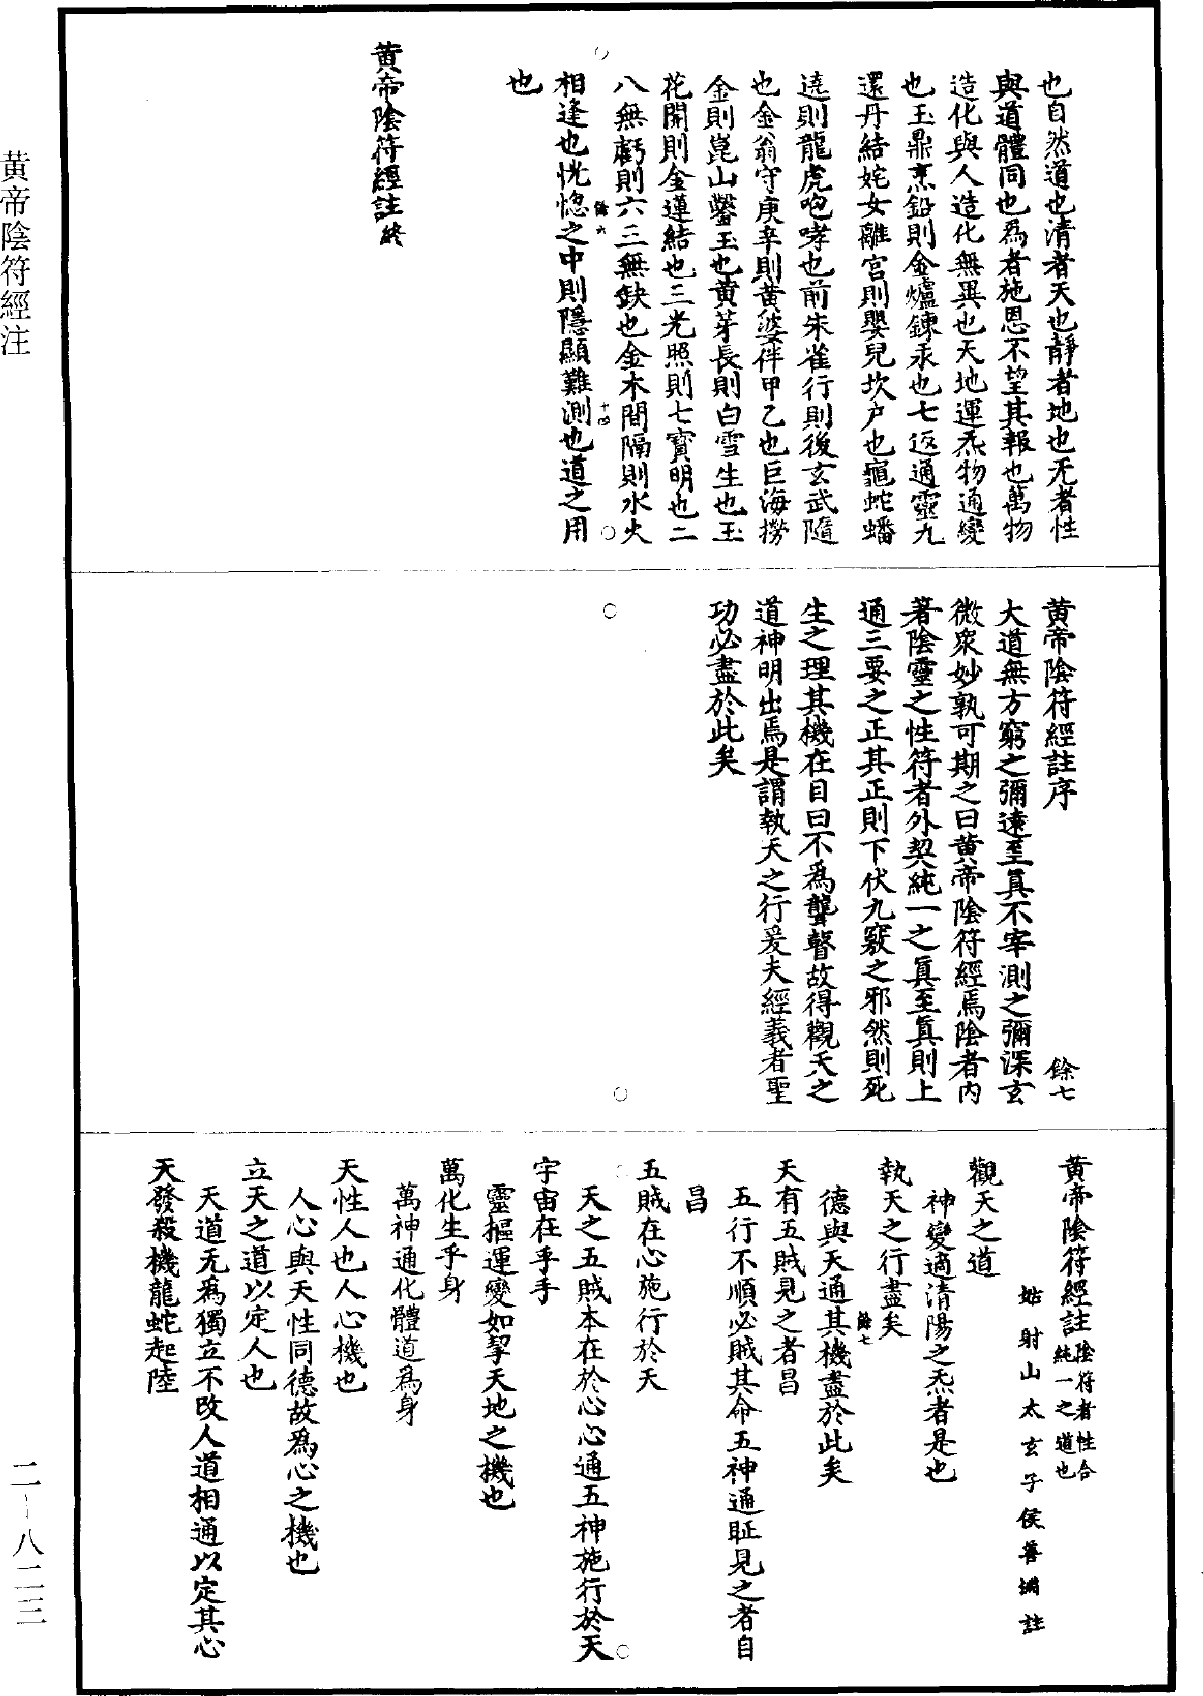 黃帝陰符經注
二-八二三
也自然道也清者天也靜者地也无者性
與道體同也為者施恩不望其報也萬物
造化與人造化無異也天地運炁物通變
也玉鼎烹鉛則金爐鍊汞也七返通靈九
還丹結姹女離宮則嬰兒坎户也龜蛇蟠
遶則龍虎咆哮也前朱雀行則後玄武隨
也金翁守庚辛則黄婆伴甲乙也巨海撈
金則崑山鑿玉也黄芽長則白雪生也玉
花開則金蓮結也三光照則七寳明也二
八無虧則六三無缺也金木間隔則水火
餘六
十四
相逢也恍惚之中則隱顯難測也道之用
也
黄帝陰符經註終
黄帝陰符經註序
餘七
大道無方窮之彌遠至真不宰測之彌深玄
微衆妙孰可期之曰黄帝陰符經焉陰者內
著陰靈之性符者外契純一之真至真則上
通三要之正其正則下伏九竅之邪然則死
生之理其機在目曰不為聾瞽故得觀天之
道神明出焉是謂執天之行爰夫經義者聖
功必盡於此矣
黄帝陰符經註 陰符者性合
純一之道也
姑射山太玄子侯善淵註
觀天之道
神變適清陽之炁者是也
執天之行盡矣
餘七
德與天通其機盡於此矣
天有五賊見之者昌
五行不順必賊其命五神通眐見之者自
昌
五賊在心施行於天
天之五賊本在於心心通五神施行於天
宇宙在乎手
靈樞運變如挈天地之機也
萬化生乎身
萬神通化體道為身
天性人也人心機也
人心與天性同德故為心之機也
立天之道以定人也
天道无為獨立不改人道相通以定其心
天發殺機龍蛇起陸